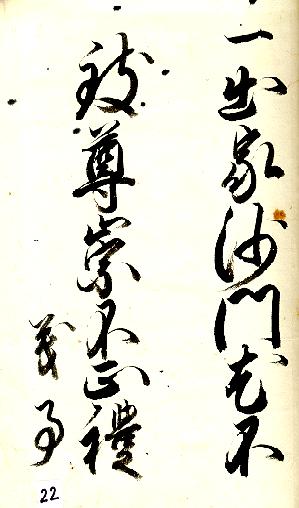 一出家沙門不
致尊崇不正禮
義事
22